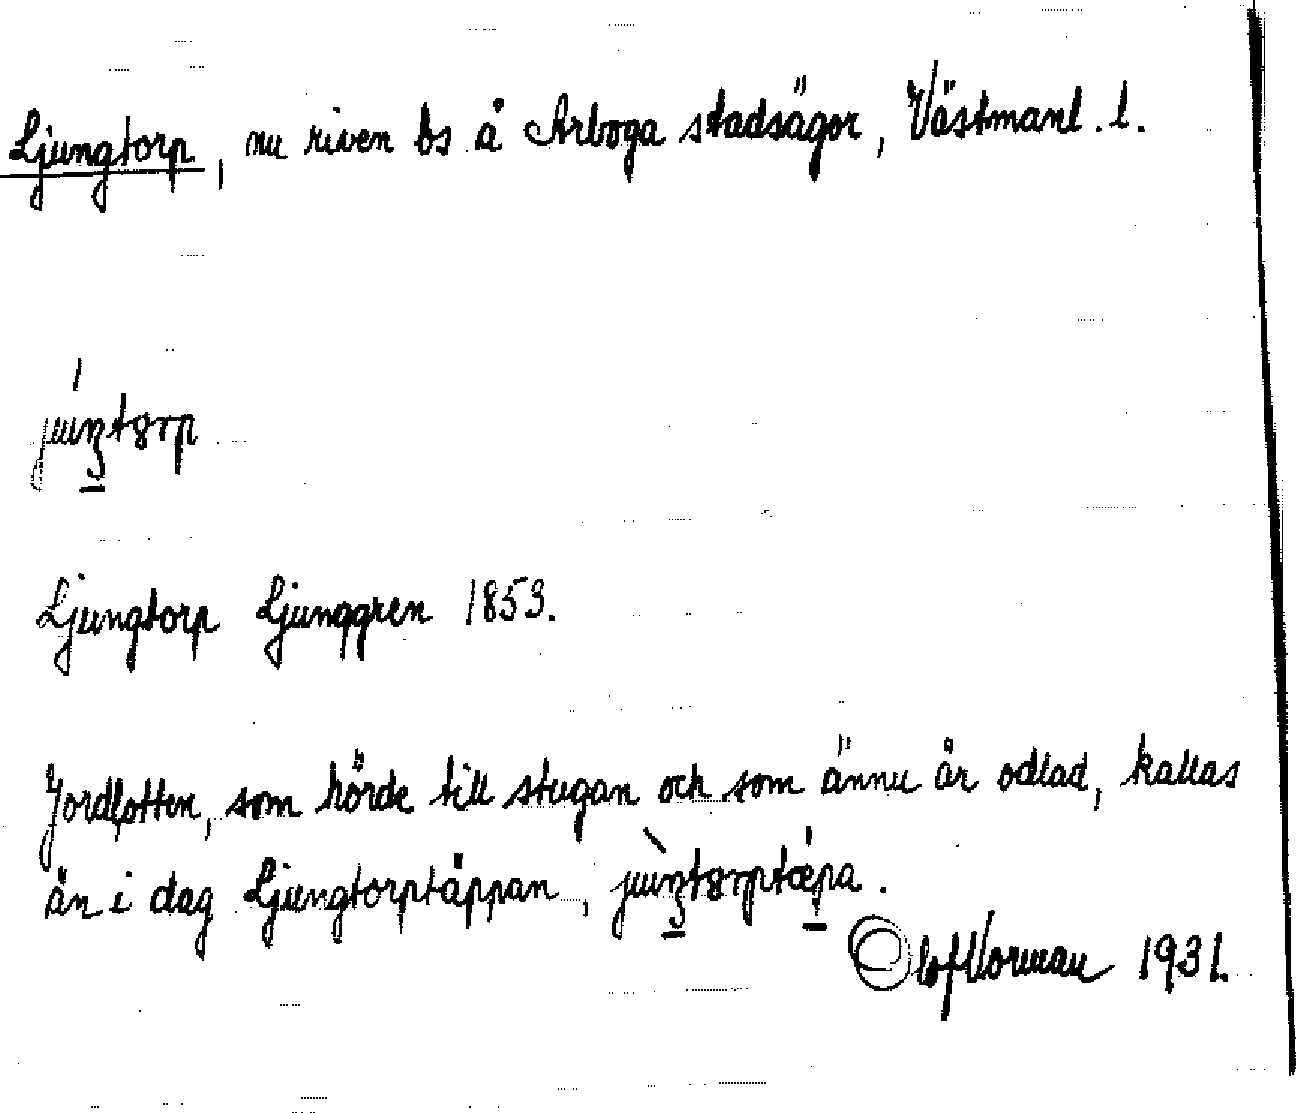 Ljungtorp, nu riven bs å Arboga stadsägor, Västmanl. l.
juŋtorp
Ljungtorp Ljunggren 1853.
Jordlotten, som hörde till stugan och som ännu är odlad, kallas
än i dag Ljungtorptäppan, juŋtorptæpa.
Olof Norman 1931.